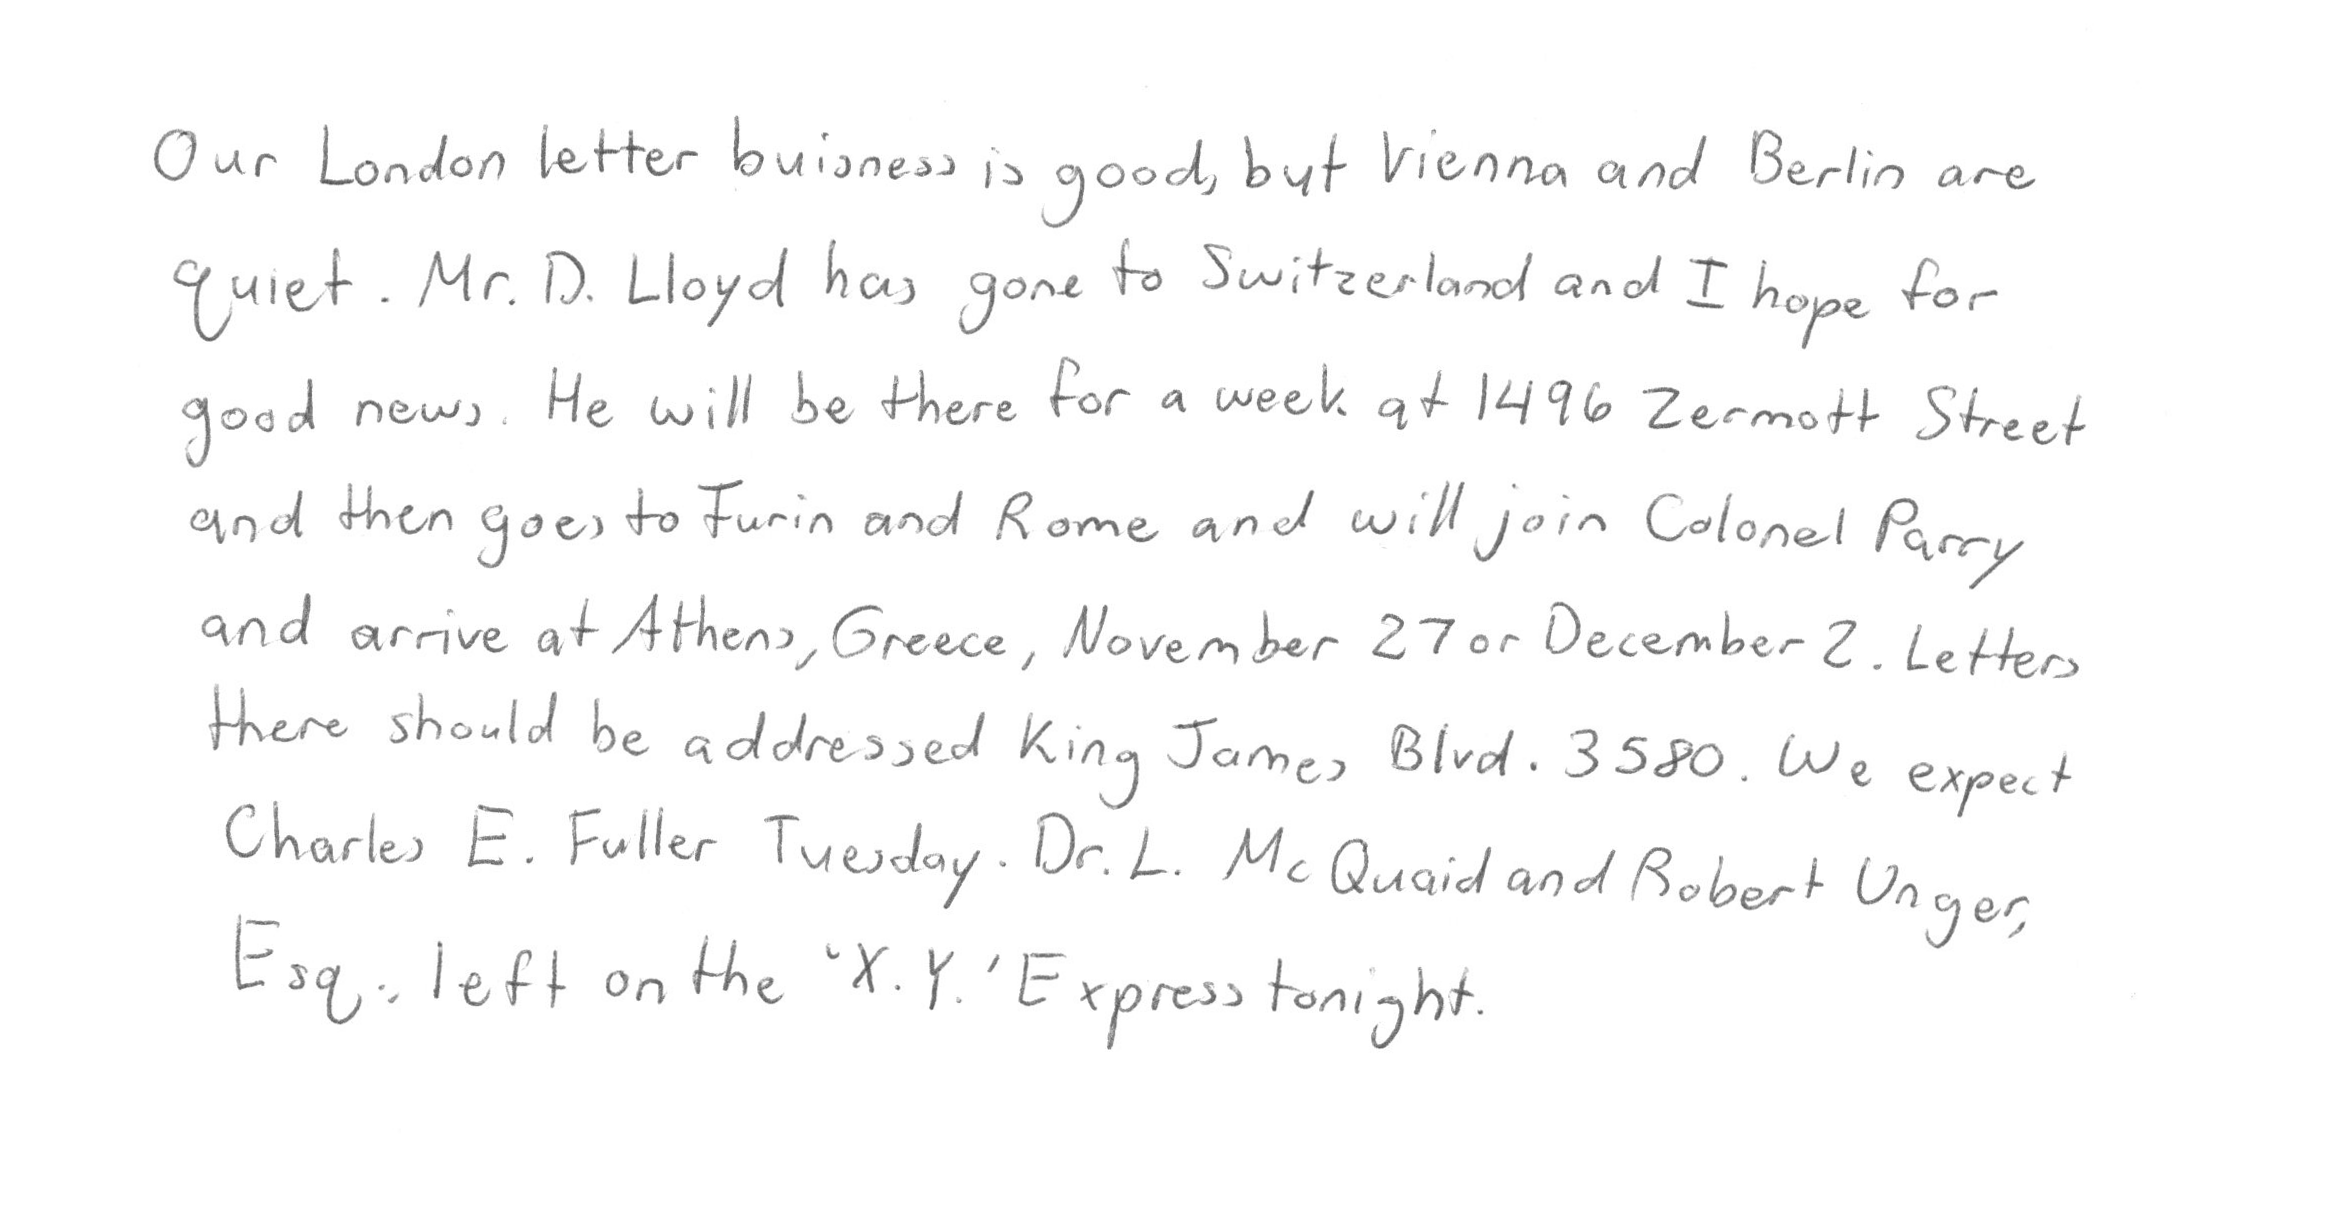 Our London letter buisness is good, but Vienna and Berlin are
quiet. Mr. D. Lloyd has gone to Switzerland and I hope for
good news. He will be there for a week at 1496 Zermott Street
and then goes to Turin and Rome and will join Colonel Parry
and arrive at Athens, Greece, November 27 or December 2. Letters
there should be addressed King James Blvd. 3580. We expect
Charles E. Fuller Tuesday. Dr. L. McQuaid and Robert Unger,
Esq., left on the 'X.Y.' Express tonight.